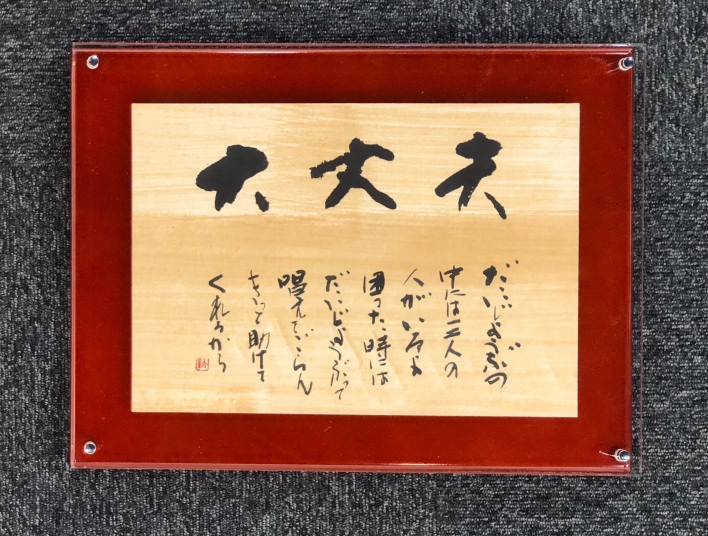 大丈夫
だいじょうぶの
中には三人の
人がいるよ
困った時には
だいじょうぶって
唱えてごらん
きっと助けて
くれるから